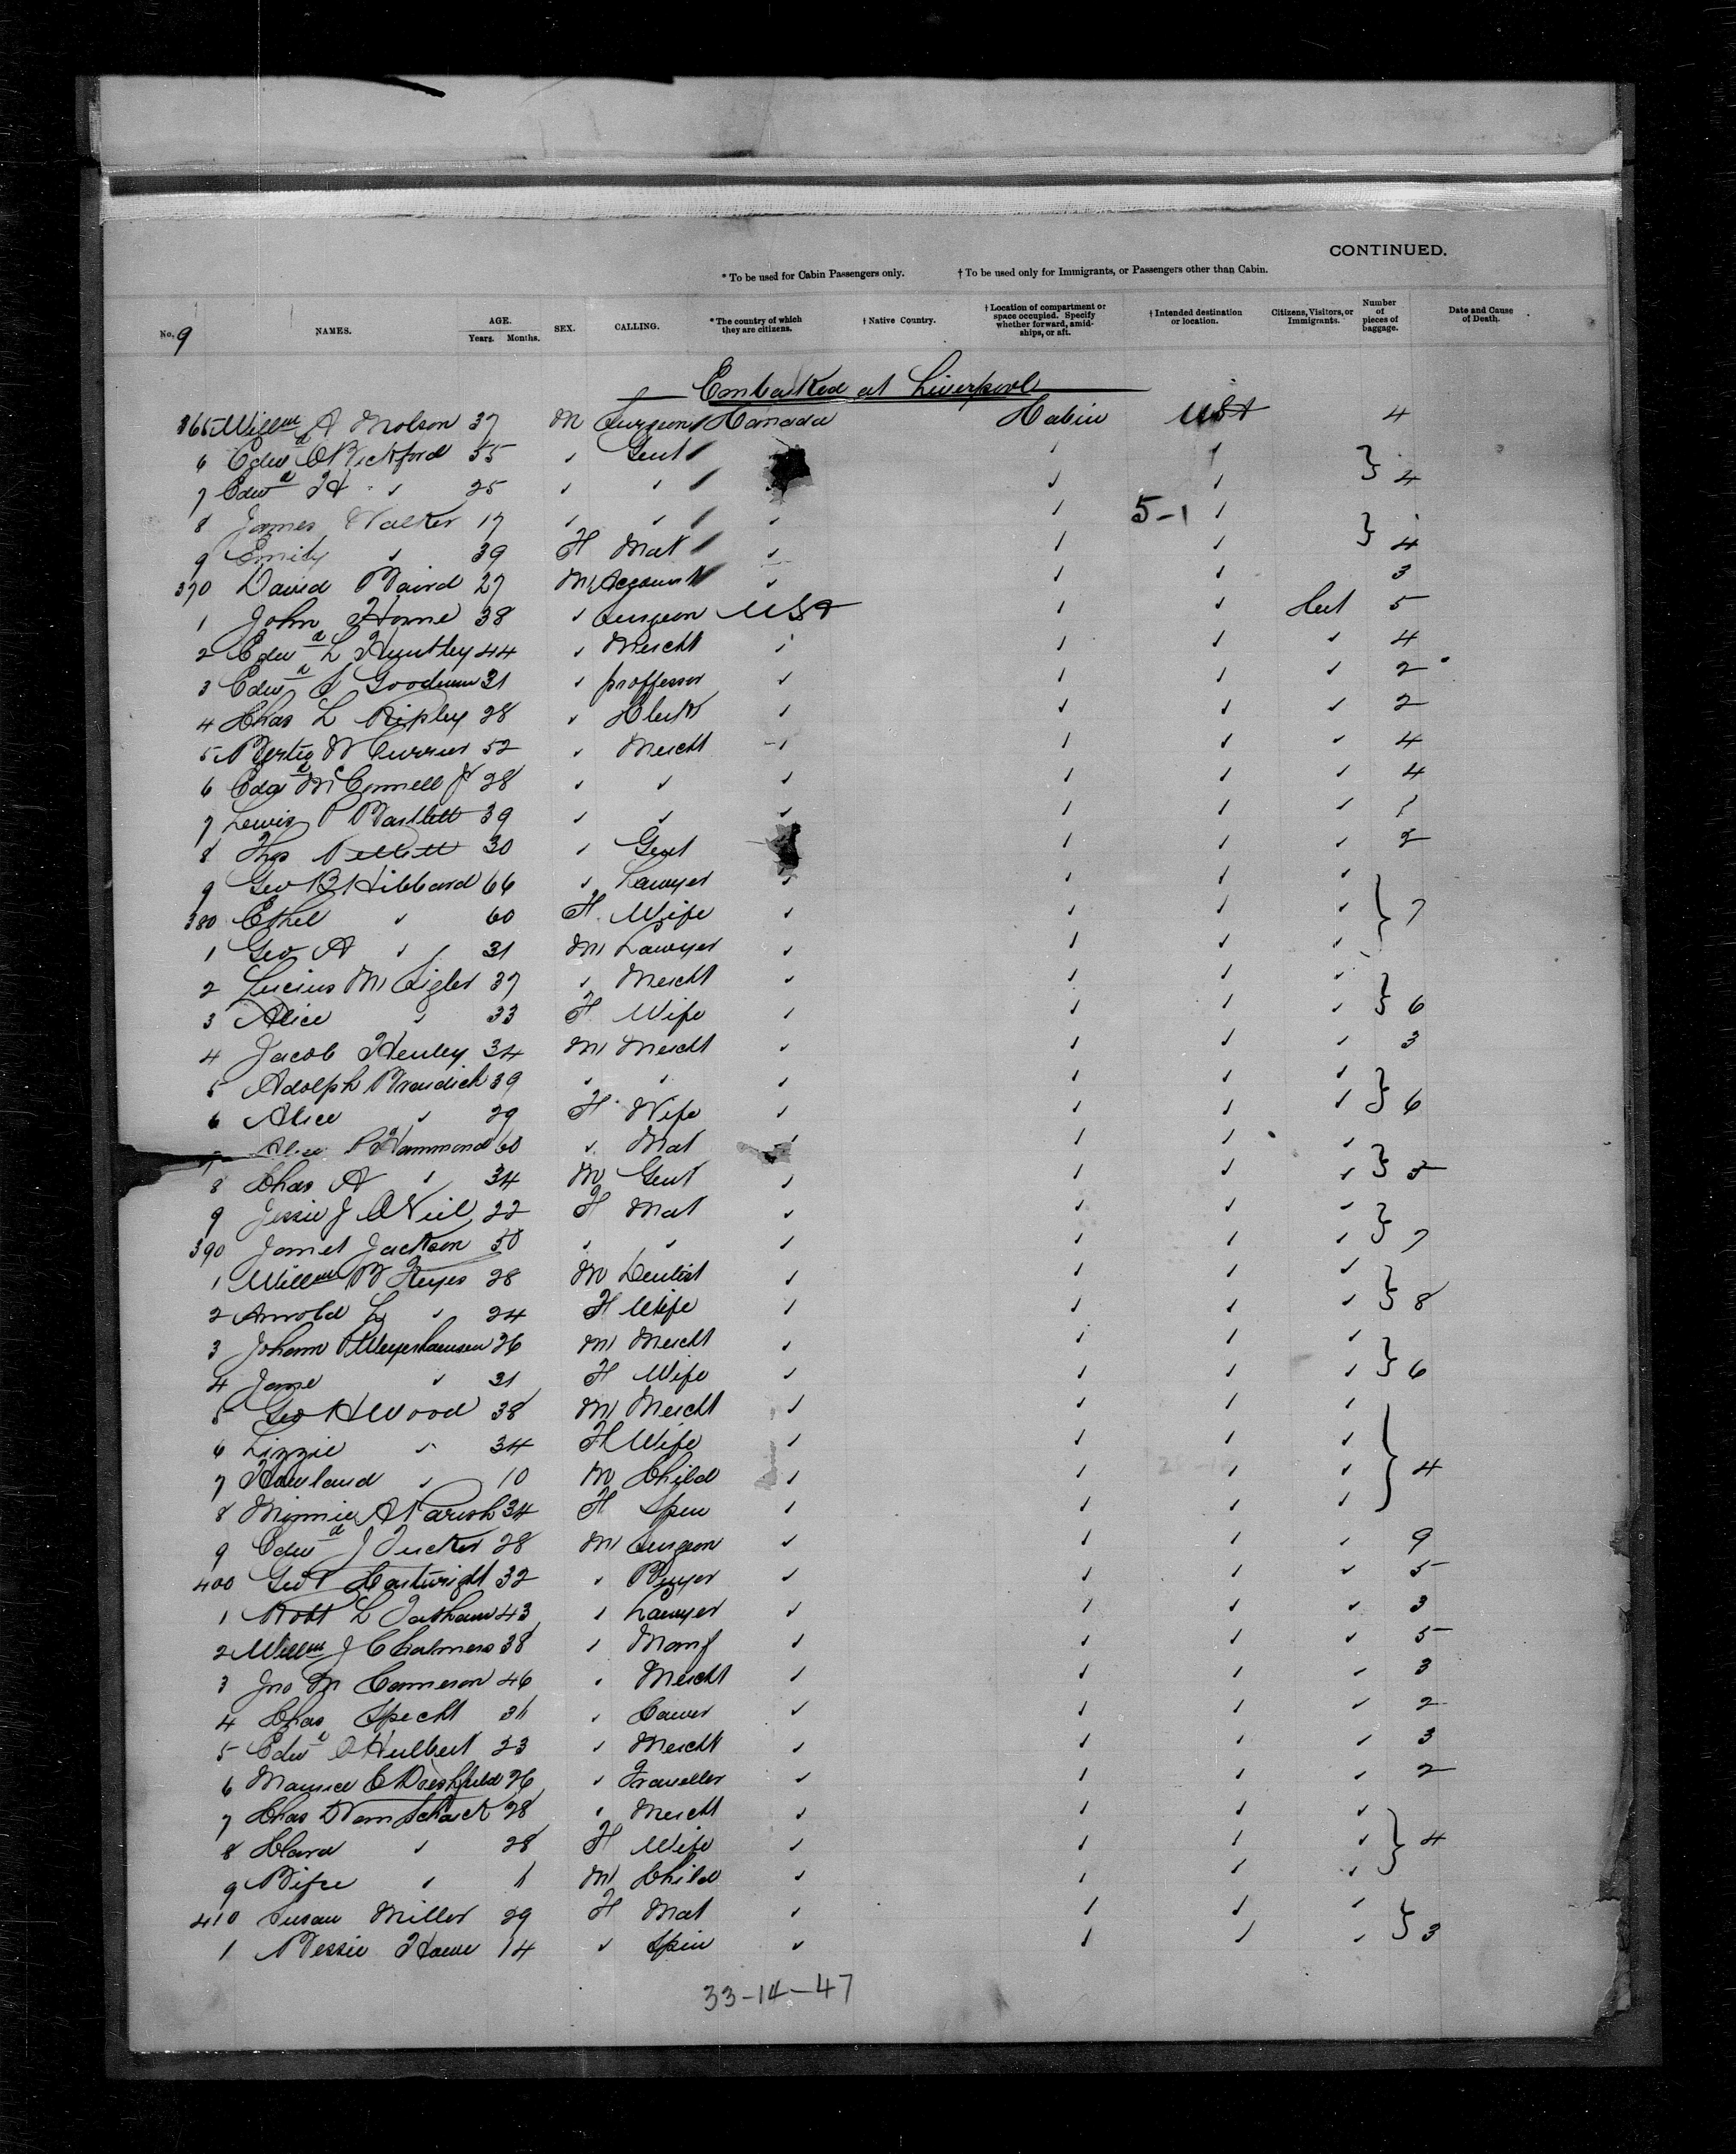 CONTINUED.
* To be used for Cabin Passengers only. † To be used only for Immigrants, or Passengers other than Cabin.
No. 9 NAMES. AGE. Years. Months. SEX. CALLING. * The country of which they are citizens. † Native Country. † Location of compartment or space occupied. Specify whether forward, amidships, or aft. † Intended destination or location. Citizens, Visitors, or Immigrants. Number of pieces of baggage. Date and Cause of Death.
Embarked at Liverpool
365 Willm A Molson 37 M Surgeon Canada Cabin USA 4
6 Edwd O Bickford 55 ✓ Gent ✓ ✓
7 Edwd H ✓ 25 ✓ ✓ ✓ ✓ } 4
8 James Walker 17 ✓ ✓ ✓ ✓ 5-1 ✓
9 Emily ✓ 39 F Mat ✓ ✓ ✓ } 4
370 David Baird 27 M Account ✓ ✓ ✓ 3
1 John Horne 38 ✓ Surgeon USA ✓ ✓ Cit 5
2 Edwd L Huntley 44 ✓ Mercht ✓ ✓ ✓ ✓ 4
3 Edwd S Goodwin 31 ✓ proffessor ✓ ✓ ✓ ✓ 2
4 Chas L Ripley 28 ✓ Clerk ✓ ✓ ✓ ✓ 2
5 W Currier 52 ✓ Mercht ✓ ✓ ✓ ✓ 4
6 McConnell Jr 28 ✓ ✓ ✓ ✓ ✓ ✓ 4
7 Lewis P Bartlett 39 ✓ ✓ ✓ ✓ ✓ ✓ 1
8 Thos 30 ✓ Gent ✓ ✓ ✓ 2
9 Geo B Hibbard 66 ✓ Lawyer ✓ ✓ ✓ ✓
380 Ethel ✓ 60 F Wife ✓ ✓ ✓ ✓ } 7
1 Geo A ✓ 31 M Lawyer ✓ ✓ ✓ ✓
2 Lucius M Sigler 37 ✓ Mercht ✓ ✓ ✓ ✓
3 Alice ✓ 33 F Wife ✓ ✓ ✓ ✓ } 6
4 Jacob Henley 34 M Mercht ✓ ✓ ✓ ✓ 3
5 Adolph Brandich 39 ✓ ✓ ✓ ✓ ✓ ✓
6 Alice ✓ 29 F Wife ✓ ✓ ✓ ✓ } 6
7 Alice P Hammond 60 ✓ Mat ✓ ✓ ✓ ✓
8 Chas A ✓ 34 M Gent ✓ ✓ ✓ ✓ }
9 Jessie J O'Neil 22 F Mat ✓ ✓ ✓ ✓
390 Janet Jackson 50 ✓ ✓ ✓ ✓ ✓ ✓ } 7
1 Willm W Keyes 28 M Dentist ✓ ✓ ✓ ✓
2 Arnold L ✓ 24 F Wife ✓ ✓ ✓ ✓ } 8
3 Johann Meyershausen 26 M Mercht ✓ ✓ ✓ ✓
4 Jane ✓ 31 F Wife ✓ ✓ ✓ ✓ } 6
5 Geo H Wood 38 M Mercht ✓ ✓ ✓ ✓
6 Lizzie ✓ 34 F Wife ✓ ✓ ✓ ✓
7 Howland ✓ 10 M Child ✓ ✓ ✓ ✓ } 4
8 Minnie A Parish 34 F Spin ✓ ✓ ✓ ✓
9 Edwd J Tucker 28 M Surgeon ✓ ✓ ✓ ✓ 9
400 Geo P Cartwright 32 ✓ Buyer ✓ ✓ ✓ ✓ 5
1 Robt L Tatham 43 ✓ Lawyer ✓ ✓ ✓ ✓ 3
2 Willm J Chalmers 38 ✓ Manf ✓ ✓ ✓ ✓ 5
3 Jno M Cameron 46 ✓ Mercht ✓ ✓ ✓ ✓ 3
4 Chas Specht 31 ✓ ✓ ✓ ✓ ✓ 2
5 Edwd O Hulbert 23 ✓ Mercht ✓ ✓ ✓ ✓ 3
6 Maurice E 26 ✓ Traveller ✓ ✓ ✓ ✓ 2
7 Chas Ramschack 28 ✓ Mercht ✓ ✓ ✓ ✓
8 Clara ✓ 28 F Wife ✓ ✓ ✓ ✓ } 4
9 ✓ 1 M Child ✓ ✓ ✓ ✓
410 Susan Miller 29 F Mat ✓ ✓ ✓ ✓
1 Bessie Howe 14 ✓ Spin ✓ ✓ ✓ ✓ } 3
33-14-47